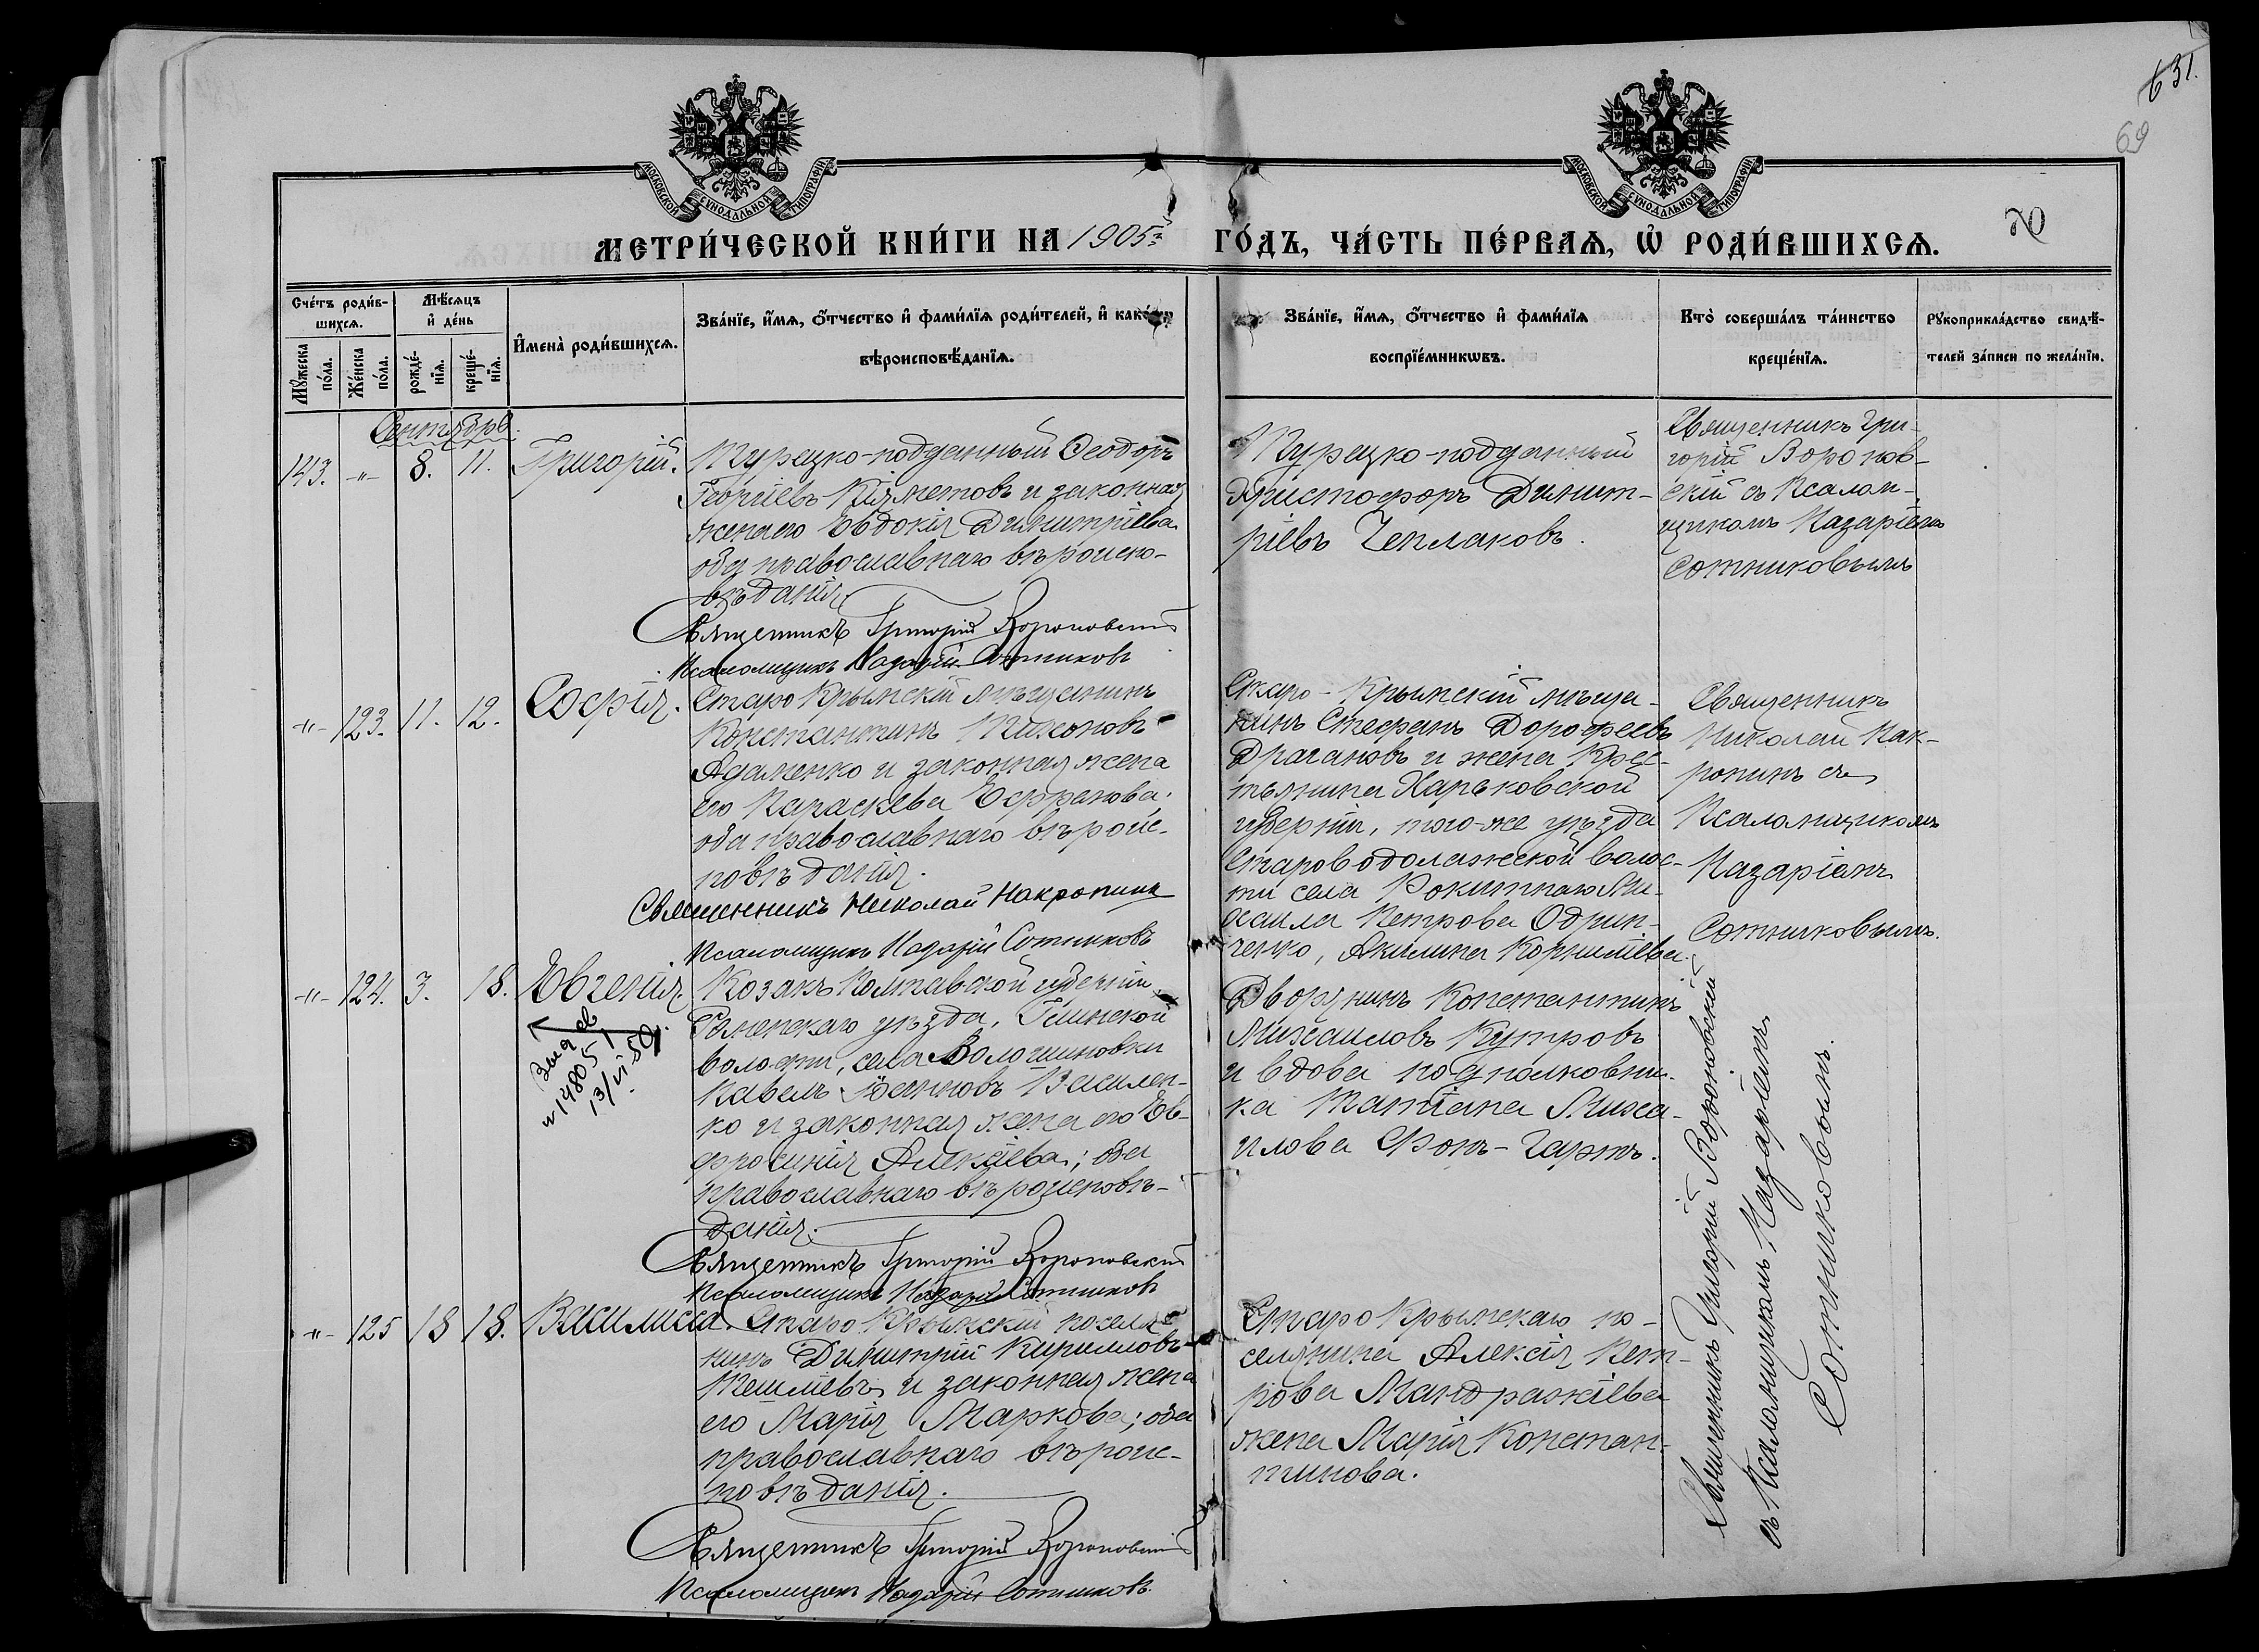 631.
69
70
МОСКОВСКОЙ СѴНОДАЛЬНОЙ ТИПОГРАФІИ
МОСКОВСКОЙ СѴНОДАЛЬНОЙ ТИПОГРАФІИ
МЕТРИ́ЧЕСКОЙ КНИ́ГИ НА 1905й ГО́ДЪ, ЧА́СТЬ ПЕ́РВАѦ, Ѡ҆ РОДИ́ВШИХСѦ.
Сче́тъ роди́в-
шихсѧ.
Мꙋ́жеска по́ла.
Же́нска по́ла.
Мѣ́сѧцъ
и҆ де́нь
рожде́-
нїѧ.
креще́-
нїѧ.
И҆мена̀ роди́вшихсѧ.
Зва́нїе, и҆́мѧ, ѻ҆́тчество и҆ фами́лїѧ роди́телей, и҆ како́гѡ
вѣроисповѣ́данїѧ.
Зва́нїе, и҆́мѧ, ѻ҆́тчество и҆ фами́лїѧ
воспрїе́мникѡвъ.
Кто̀ соверша́лъ та́инство
креще́нїѧ.
Рꙋкоприкла́дство свидѣ́-
телей за́писи по жела́нїю.
Сентябрь.
143. -"- 8. 11. Григорій.
Турецко-подданный Ѳеодоръ
Георгіевъ Кизметовъ и законная
жена его Евдокія Димитріева
оба православнаго вѣроиспо-
вѣданія.
Священникъ Григорій Вороновскій
Псаломщикъ Назарій Сотниковъ
Турецко-подданный
Христофоръ Димит-
ріевъ Чеплаковъ.
Священникъ Гри-
горій Воронов-
скій съ Псалом-
щикомъ Назаріемъ
Сотниковымъ
-"- 123. 11. 12. Софія.
Старо Крымскій мѣщанинъ
Константинъ Тихоновъ
Адаменко и законная жена
его Параскева Ефремова.
оба православнаго вѣроис-
повѣданія.
Священникъ Николай Накропинъ
Псаломщикъ Назарій Сотниковъ
Старо-Крымскій мѣща-
нинъ Стефанъ Дорофеевъ
Драгановъ и жена Крес-
тьянина Харьковской
губерніи, того-же уѣзда
Староводолажской волос-
ти села Рокитнаго Ми-
хаила Петрова Одрин-
ченко, Акилина Корниліева.
Священникъ
Николай Нак-
ропинъ съ
Псаломщикомъ
Назаріемъ
Сотниковымъ.
-"- 124. 3. 18. Евгенія.
и 148051
13/VI-50
Козакъ Полтавской губерніи,
Роменскаго уѣзда, Глинской
волости, села Волошиновки
Павелъ Василен-
ко и законная жена его Ев-
фросинія Алексіева; оба
православнаго вѣроисповѣ-
данія.
Священникъ Григорій Вороновскій
Псаломщикъ Назарій Сотниковъ
Дворянинъ Константинъ
Михаиловъ Купровъ
и вдова подполковни-
ка Татіана Миха-
илова Фонъ-Гартъ.
-"- 125 18 18. Василисса.
Старо Крымскій поселя-
нинъ Димитрій Кирилловъ
Тешліевъ и законная жена
его Марія Маркова; оба
православнаго вѣроис-
повѣданія.
Священникъ Григорій Вороновскій
Псаломщикъ Назарій Сотниковъ.
Старо Крымскаго по-
селянина Алексія Пет-
рова Мандражіева
жена Марія Констан-
тинова.
Священникъ Григорій Вороновскій
съ Псаломщикомъ Назаріемъ
Сотниковымъ.